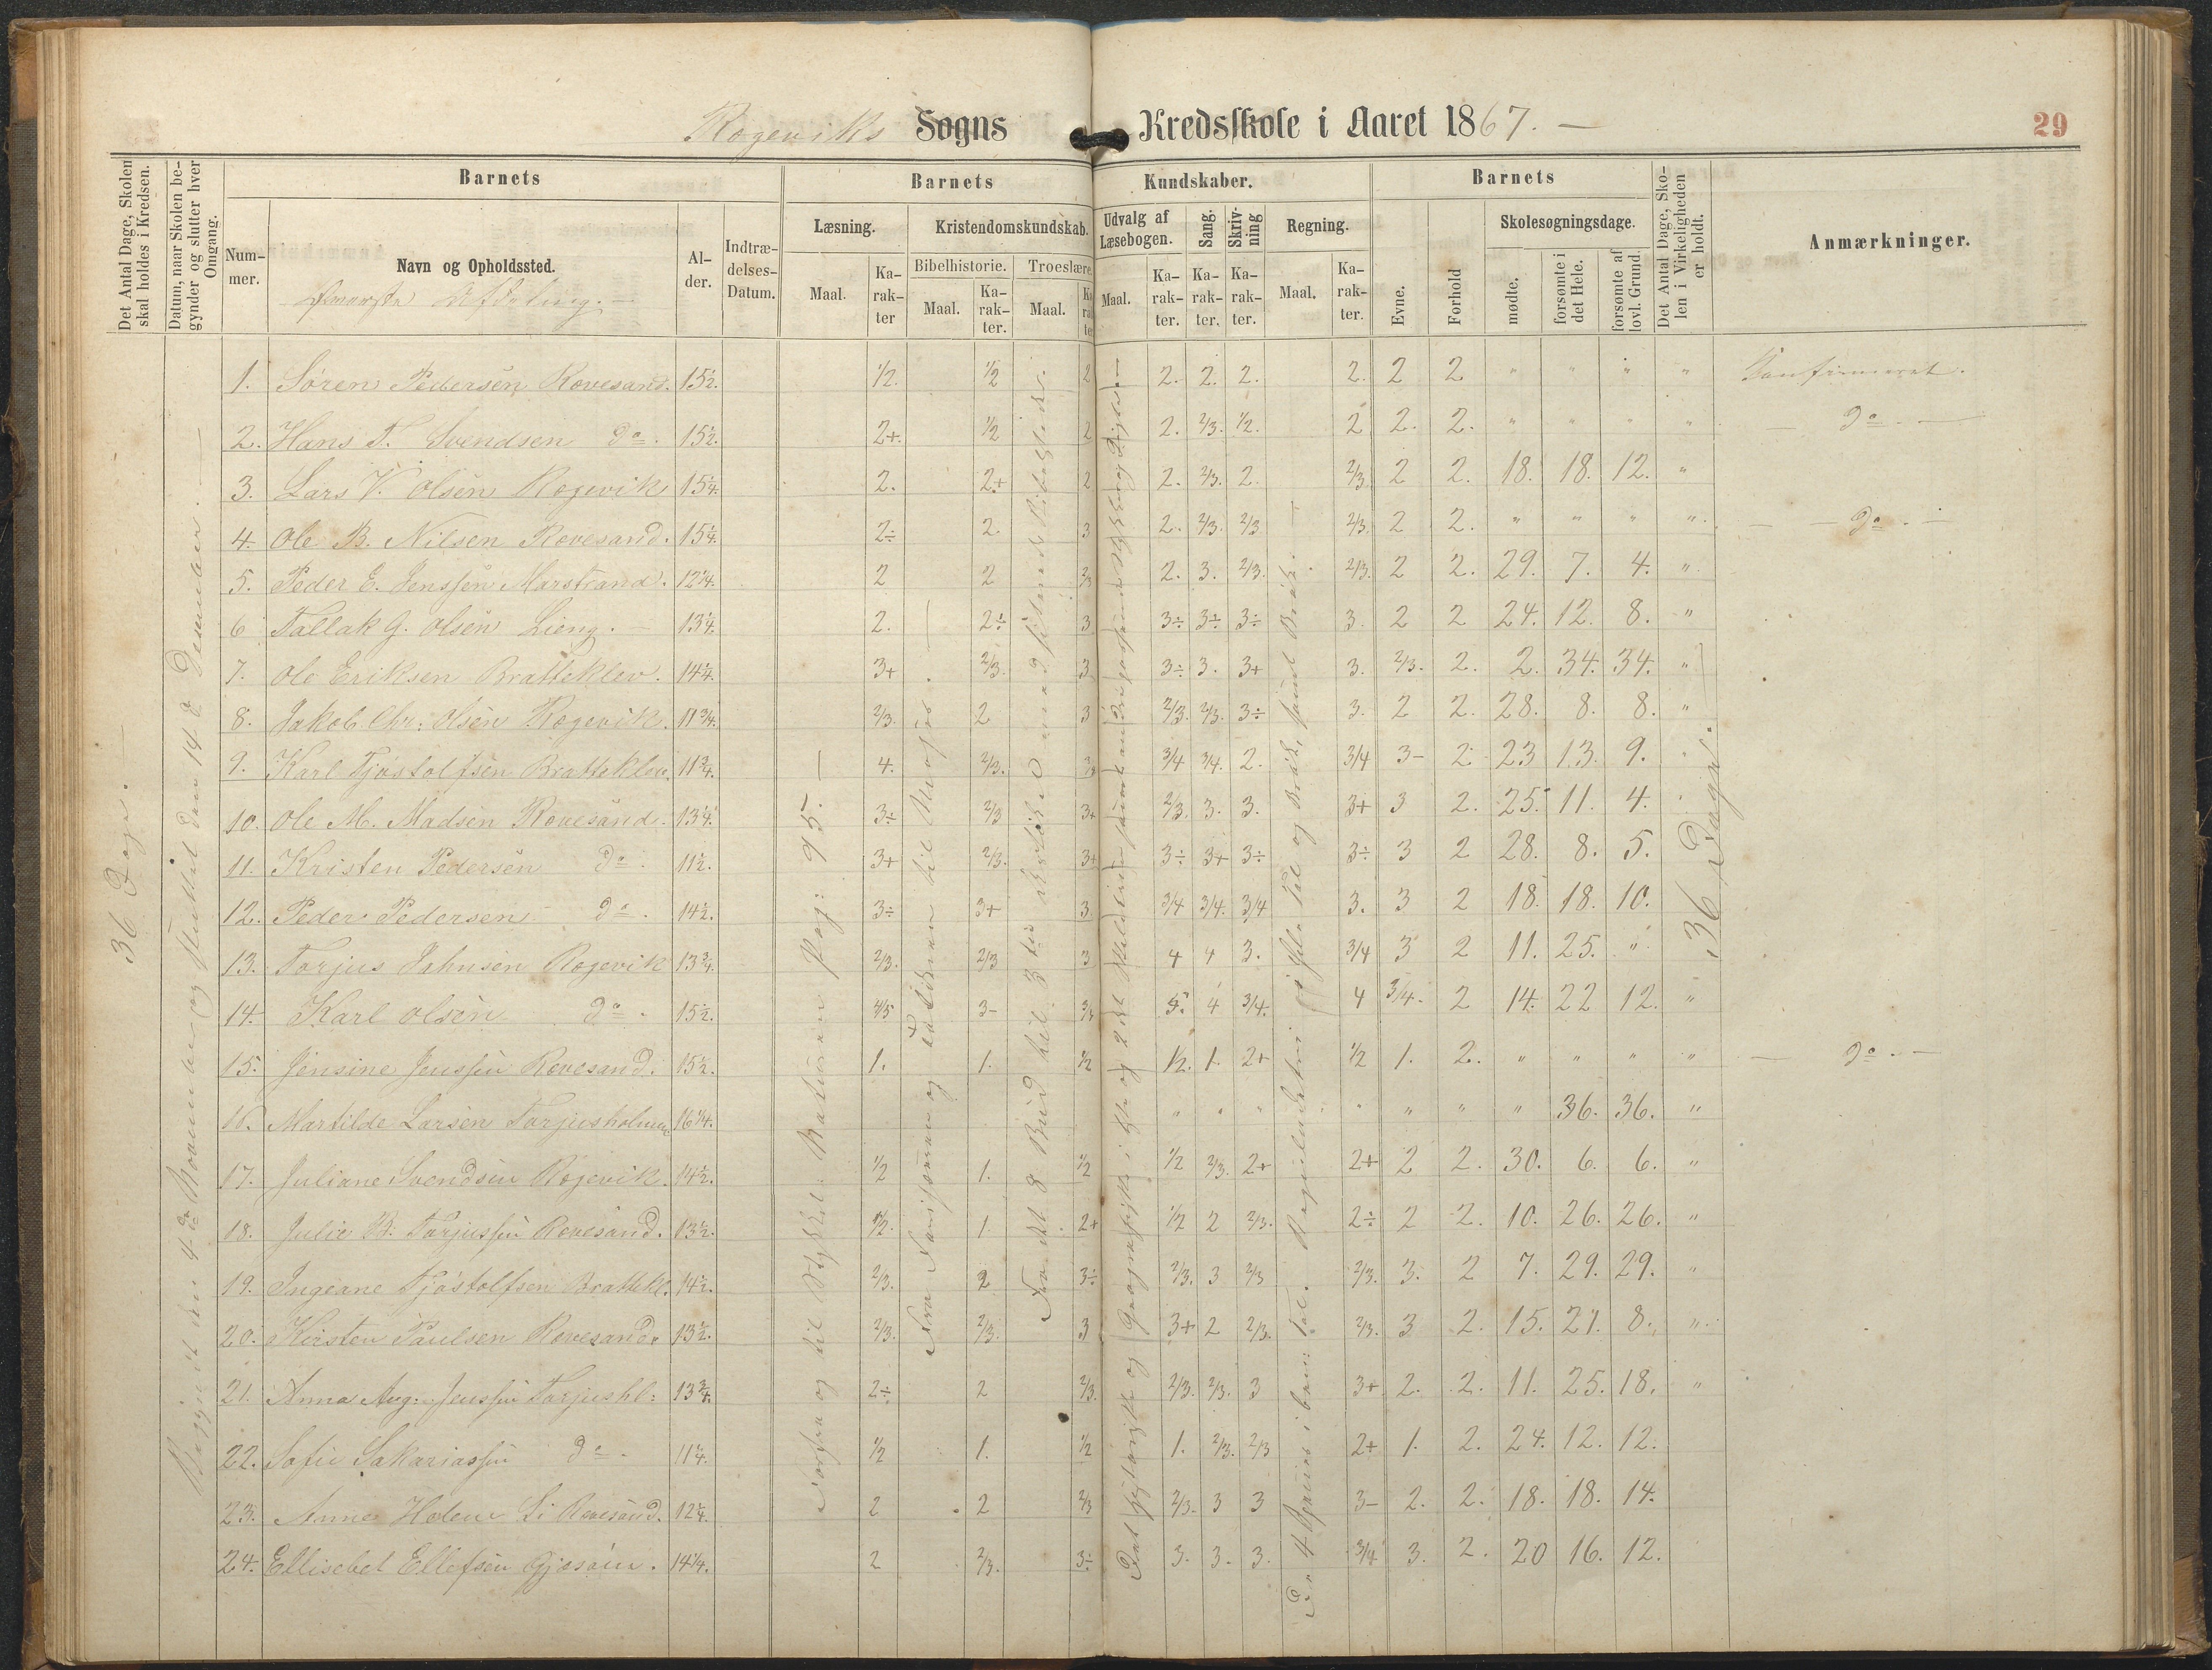 Rogeviks Sogns Kredsskole i Aaret 1867. —
29
Det Antal Dage, Skolen skal holdes i Kredsen.
Datum, naar Skolen begynder og slutter hver Omgang.
Barnets
Nummer.
Navn og Opholdssted.
Alder.
Indtrædelses-Datum.
Barnets Kundskaber.
Læsning.
Maal.
Karakter
Kristendomskundskab.
Bibelhistorie.
Maal.
Karakter.
Troeslære.
Maal.
Karakter
Udvalg af Læsebogen.
Maal.
Karakter.
Sang.
Karakter.
Skrivning
Karakter.
Regning.
Maal.
Karakter.
Barnets
Evne.
Forhold
Skolesøgningsdage.
mødte.
forsømte i det Hele.
forsømte af lovl. Grund.
Det Antal Dage, Skolen i Virkeligheden er holdt.
Anmærkninger.
36 Dage. —
36 Dage.
1. Søren Pedersen Revesand. 15½. ½. ½ 2 2. 2. 2. 2. 2 2 " " " " Konfirmeret.
2. Hans T. Svendsen do. 15½. 2+. ½ 2 2. 2/3. ½. 2 2. 2. " " " " — do. —
3. Lars V. Olsen Rogevik 15¼. 2. 2+ 2 2. 2/3. 2. 2/3. 2 2. 18. 18. 12. "
4. Ole B. Nilsen Revesand. 15¼. 2÷ 2. 3 2. 2/3. 2/3 2/3. 2 2. " " " " — do. —
5. Peder E. Jenssen Marstrand. 12¾. 2 2 2/3 2. 3. 2/3. 2/3. 2 2. 29. 7. 4. "
6 Tallak G. Olsen Lieng. 13¼. 2. 2÷ 3 3÷ 3÷ 3÷ 3. 2 2 24. 12. 8. "
7. Ole Eriksen Bratteklev. 14¼. 3+ 2/3. 3 3÷ 3. 3+ 3. 2/3. 2. 2. 34. 34. "
8. Jakob Chr: Olsen Rogevik. 11¾. 2/3. 2 3 2/3. 2/3. 3÷ 3. 2 2. 28. 8. 8. "
9. Karl Tjøstolfsen Bratteklev. 11¾. 4. 2/3. 3/4 3/4. 2. 3/4 3- 2 23 13. 9.
10. Ole M. Madsen Revesand. 13¼. 3÷ 2/3 3+ 2/3. 3. 3. 3+ 3 2. 25. 11. 4.
11. Kristen Pedersen do 11½. 3+ 2/3. 3+ 3÷ 3+ 3÷ 3÷ 3 2 28. 8. 5.
12. Peder Pedersen do. 14½. 3÷ 3+ 3 3/4 3/4. 3/4 3. 3 2 18. 18. 10.
13. Torjus Johnsen Rogevik 13¾. 2/3. 2/3 3 4 4 3. 3/4 3 2 11. 25. "
14. Karl Olsen do. 15½. 4/5 3- 5. 4 3/4. 4 3/4. 2 14. 22 12. "
15. Jensine Jenssen Revesand. 15½. 1. 1. ½ ½. 1. 2+ ½ 1. 2. " " " " — do. —
16. Martilde Larsen Torjusholmen 16¼. " " " " " " " 36. 36. "
17. Juliane Svendsen Rogevik. 14½. ½ 1. ½ ½ 2/3. 2+ 2+ 2 2. 30. 6. 6. "
18. Julie B. Torjussen Revesand. 13½. ½. 1. 2+ ½ 2 2/3. 2÷ 2 2. 10. 26. 26. "
19. Ingeane Tjøstolfsen Brattekl. 14½. 2/3. 2 3÷ 2/3. 3 2/3 2/3. 3. 2 7. 29. 29. "
20. Kirsten Paulsen Revesand. 13½. 2/3. 2/3. 3 3+ 2 2/3. 2/3. 3 2. 15. 21. 8. "
21. Anna Aug: Jenssen Torjushl: 13¾. 2÷ 2 2/3. 2/3. 2/3. 3 3+ 2. 2. 11. 25. 18. "
22. Sofie Sakariassen do. 11¼. ½ 1. ½ 1. 2/3. 2/3 2+ 1. 2. 24. 12. 12.
23. Anne Helene Li Revesand. 12¼. 2 2 2/3 2/3. 3 3 3- 2. 2. 18. 18. 14.
24. Ellisebet Ellefsen Gjesøen. 14¼. 2 2/3. 3÷ 3. 3. 3. 3/4 3. 2. 20 16. 12.